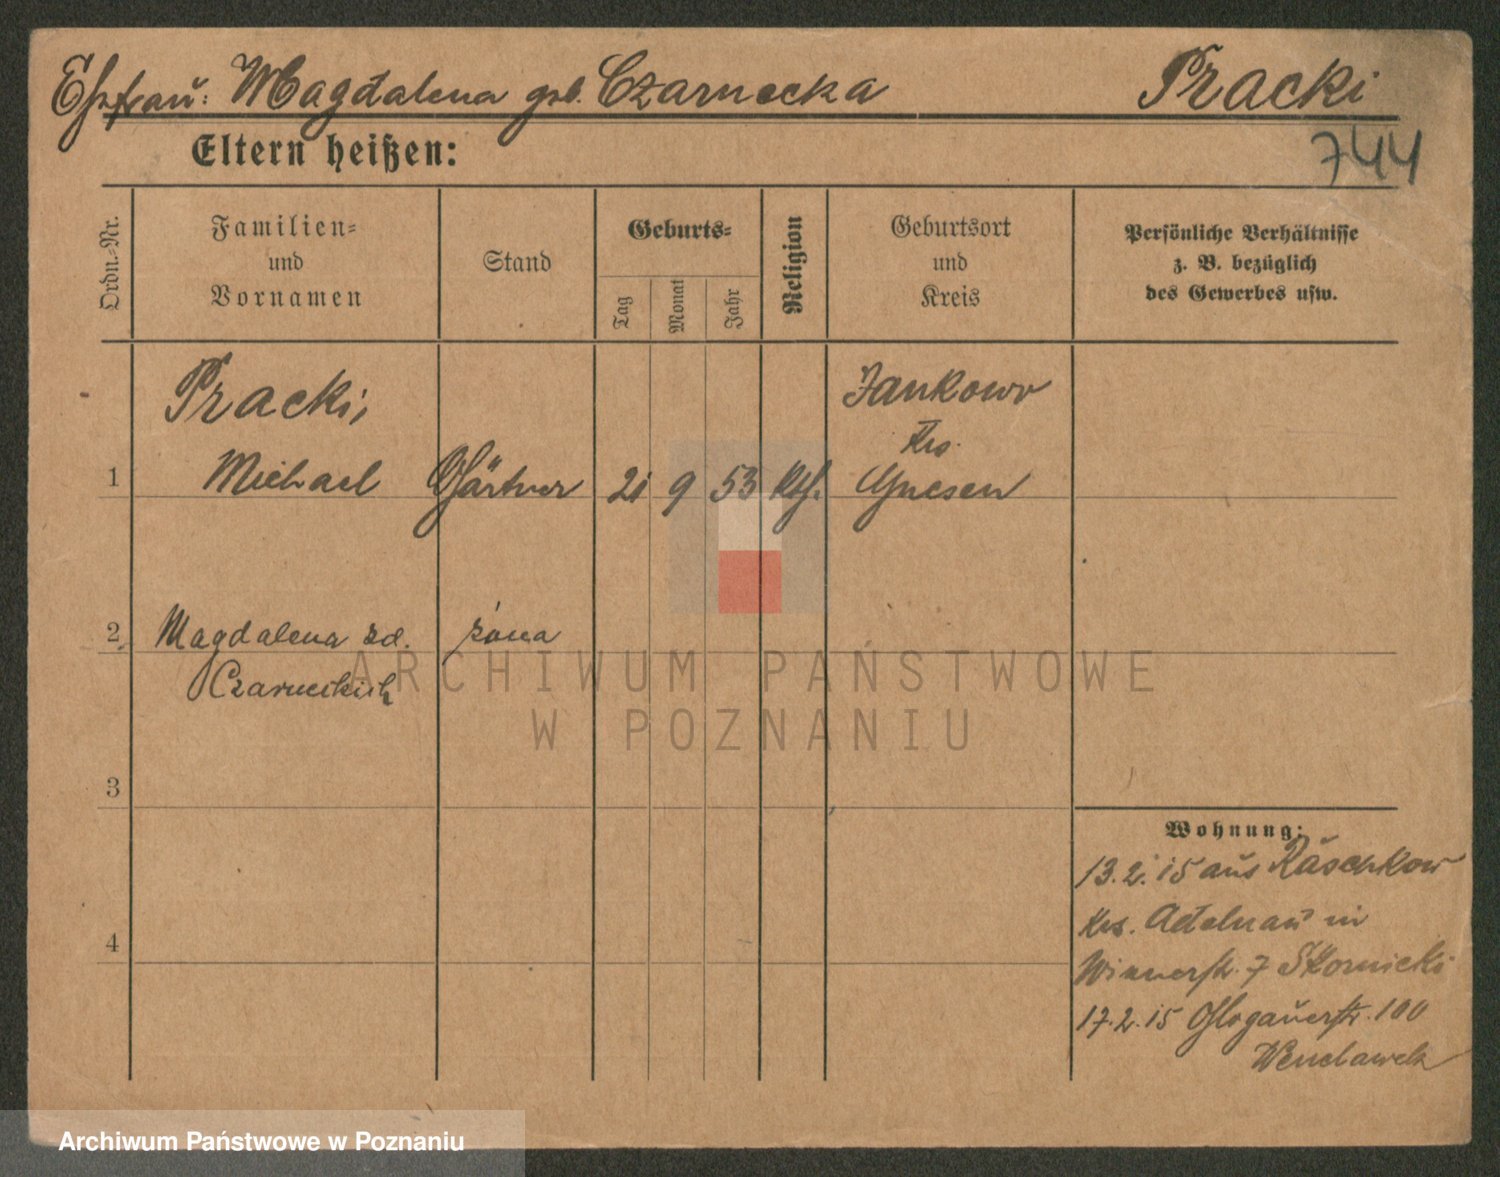 Ehefrau: Magdalena geb. Czarnecka Pracki
744
Eltern heißen:
Ordn.-Nr.
Familien-
und
Vornamen
Stand
Geburts-
Tag
Monat
Jahr
Religion
Geburtsort
und
Kreis
Persönliche Verhältnisse
z. B. bezüglich
des Gewerbes usw.
1
Pracki,
Michael
Gärtner
21
9
53
Kth.
Jankowo
Krs.
Gnesen
2
Magdalena zd.
Czarneckich
żona
3
4
Wohnung:
13.2.15 aus Raschkow
Krs. Adelnau in
Wienerstr. 7 Skornicki
17.2.15 Glogauerstr. 100
Wenclawek
ARCHIWUM PAŃSTWOWE
W POZNANIU
Archiwum Państwowe w Poznaniu